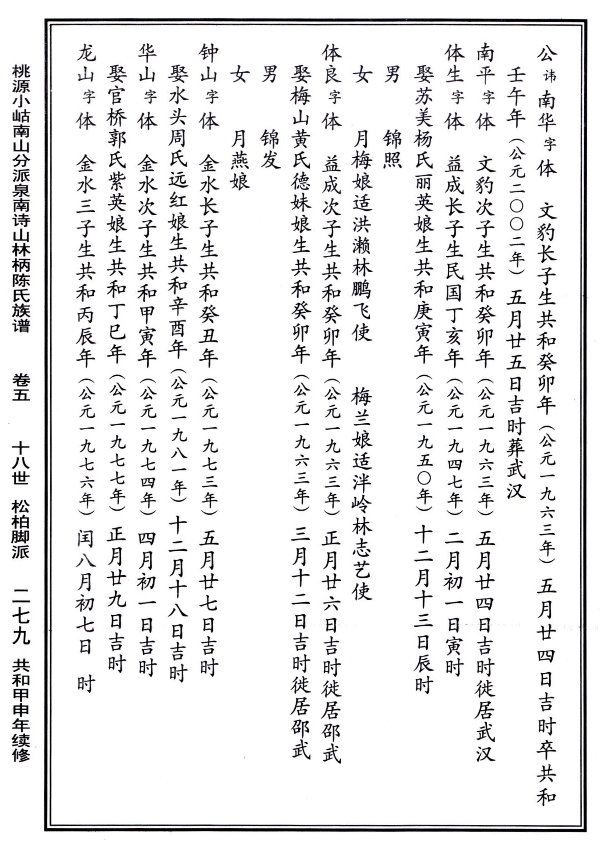 公讳南华字体 文豹长子生共和癸卯年（公元一九六三年）五月廿四日吉时卒共和
壬午年（公元二〇〇二年）五月廿五日吉时葬武汉
南平字体 文豹次子生共和癸卯年（公元一九六三年）五月廿四日吉时徙居武汉
体生字体 益成长子生民国丁亥年（公元一九四七年）二月初一日寅时
娶苏美杨氏丽英娘生共和庚寅年（公元一九五〇年）十二月十三日辰时
男 锦照
女 月梅娘适洪濑林鹏飞使 梅兰娘适泮岭林志艺使
体良字体 益成次子生共和癸卯年（公元一九六三年）正月廿六日吉时徙居邵武
娶梅山黄氏德妹娘生共和癸卯年（公元一九六三年）三月十二日吉时徙居邵武
男 锦发
女 月燕娘
钟山字体 金水长子生共和癸丑年（公元一九七三年）五月廿七日吉时
娶水头周氏远红娘生共和辛酉年（公元一九八一年）十二月十八日吉时
华山字体 金水次子生共和甲寅年（公元一九七四年）四月初一日吉时
娶官桥郭氏紫英娘生共和丁巳年（公元一九七七年）正月廿九日吉时
龙山字体 金水三子生共和丙辰年（公元一九七六年）闰八月初七日 时
桃源小岵南山分派泉南诗山林柄陈氏族谱 卷五 十八世 松柏脚派 二七九 共和甲申年续修